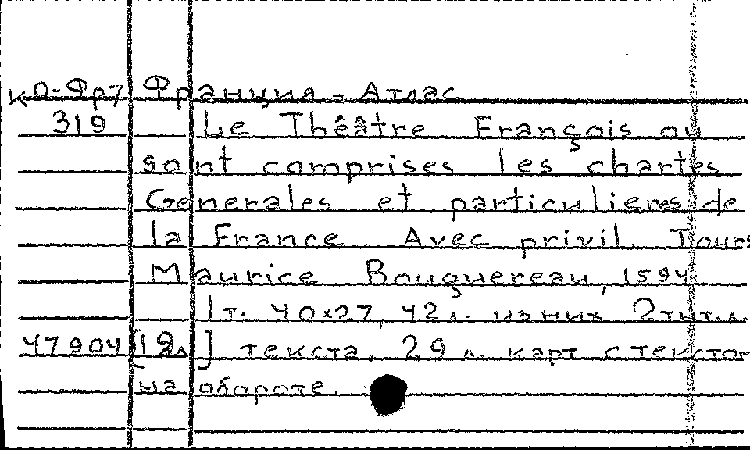 КО-Фр7 Франция - Атлас
319 Le Théâtre François ou
sont comprises les chartes
Generales et particulieres de
la France Avec privil. Tours
Maurice Bouguereau, 1594
1т. 40x27, 42л. из них 2тит.л.
47904 [12л.] текста, 29 л. карт с тексто
на обороте.